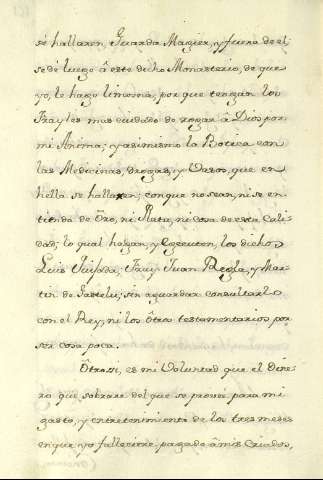 se hallaren, Guarda Mugier, y fuera de el,
se dè luego â este dicho Monasterio, de que
yo, le hago limosna, por que tengan los
Frayles mas cuidado de rogar â Dios por
mi Anima; y asimismo la Botica con
las Medicinas, drogas, y Vasos, que en
hella se hallaren; conque no sean, ni se en-
tienda de Oro, ni Plata, ni cosa de esta Cali-
dad; lo qual hagan, y egecuten, los dichos
Luis Quijada, Fray Juan Regla, y Mar-
tin de Gaztelu; sin aguardar consultarlo
con el Rey, ni los Otros testamentarios por
ser cosa poca.
Otrosi, es mi Voluntad que el Dine-
ro que sobrare del que se proveè para mi
gasto, y entretenimiento de los tres meses
en que yo falleciere, pagado â mis Criados,